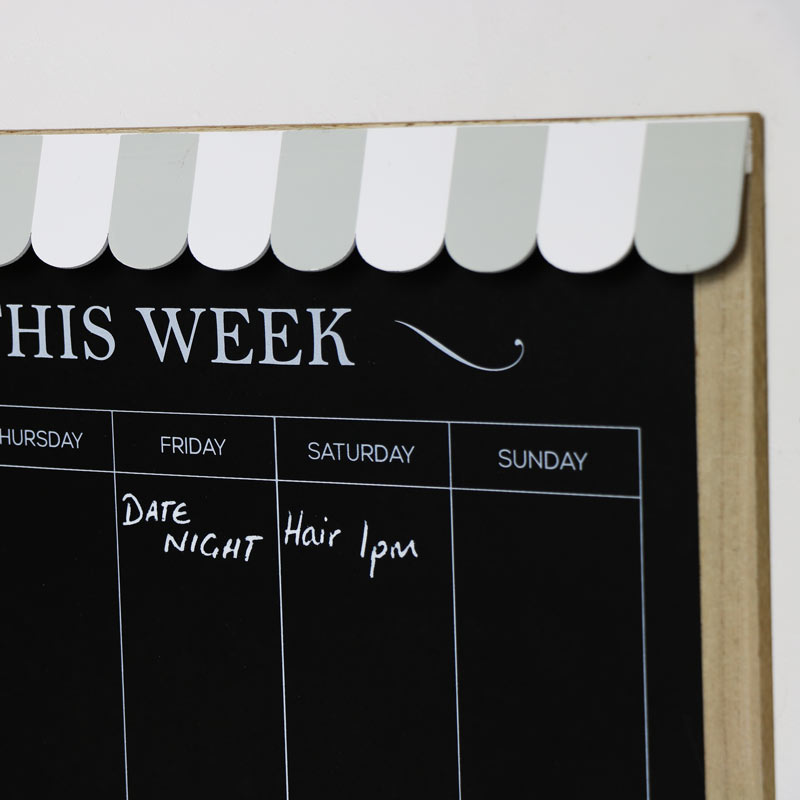 THIS WEEK
HURSDAY FRIDAY SATURDAY SUNDAY
DATE NIGHT
Hair 1pm